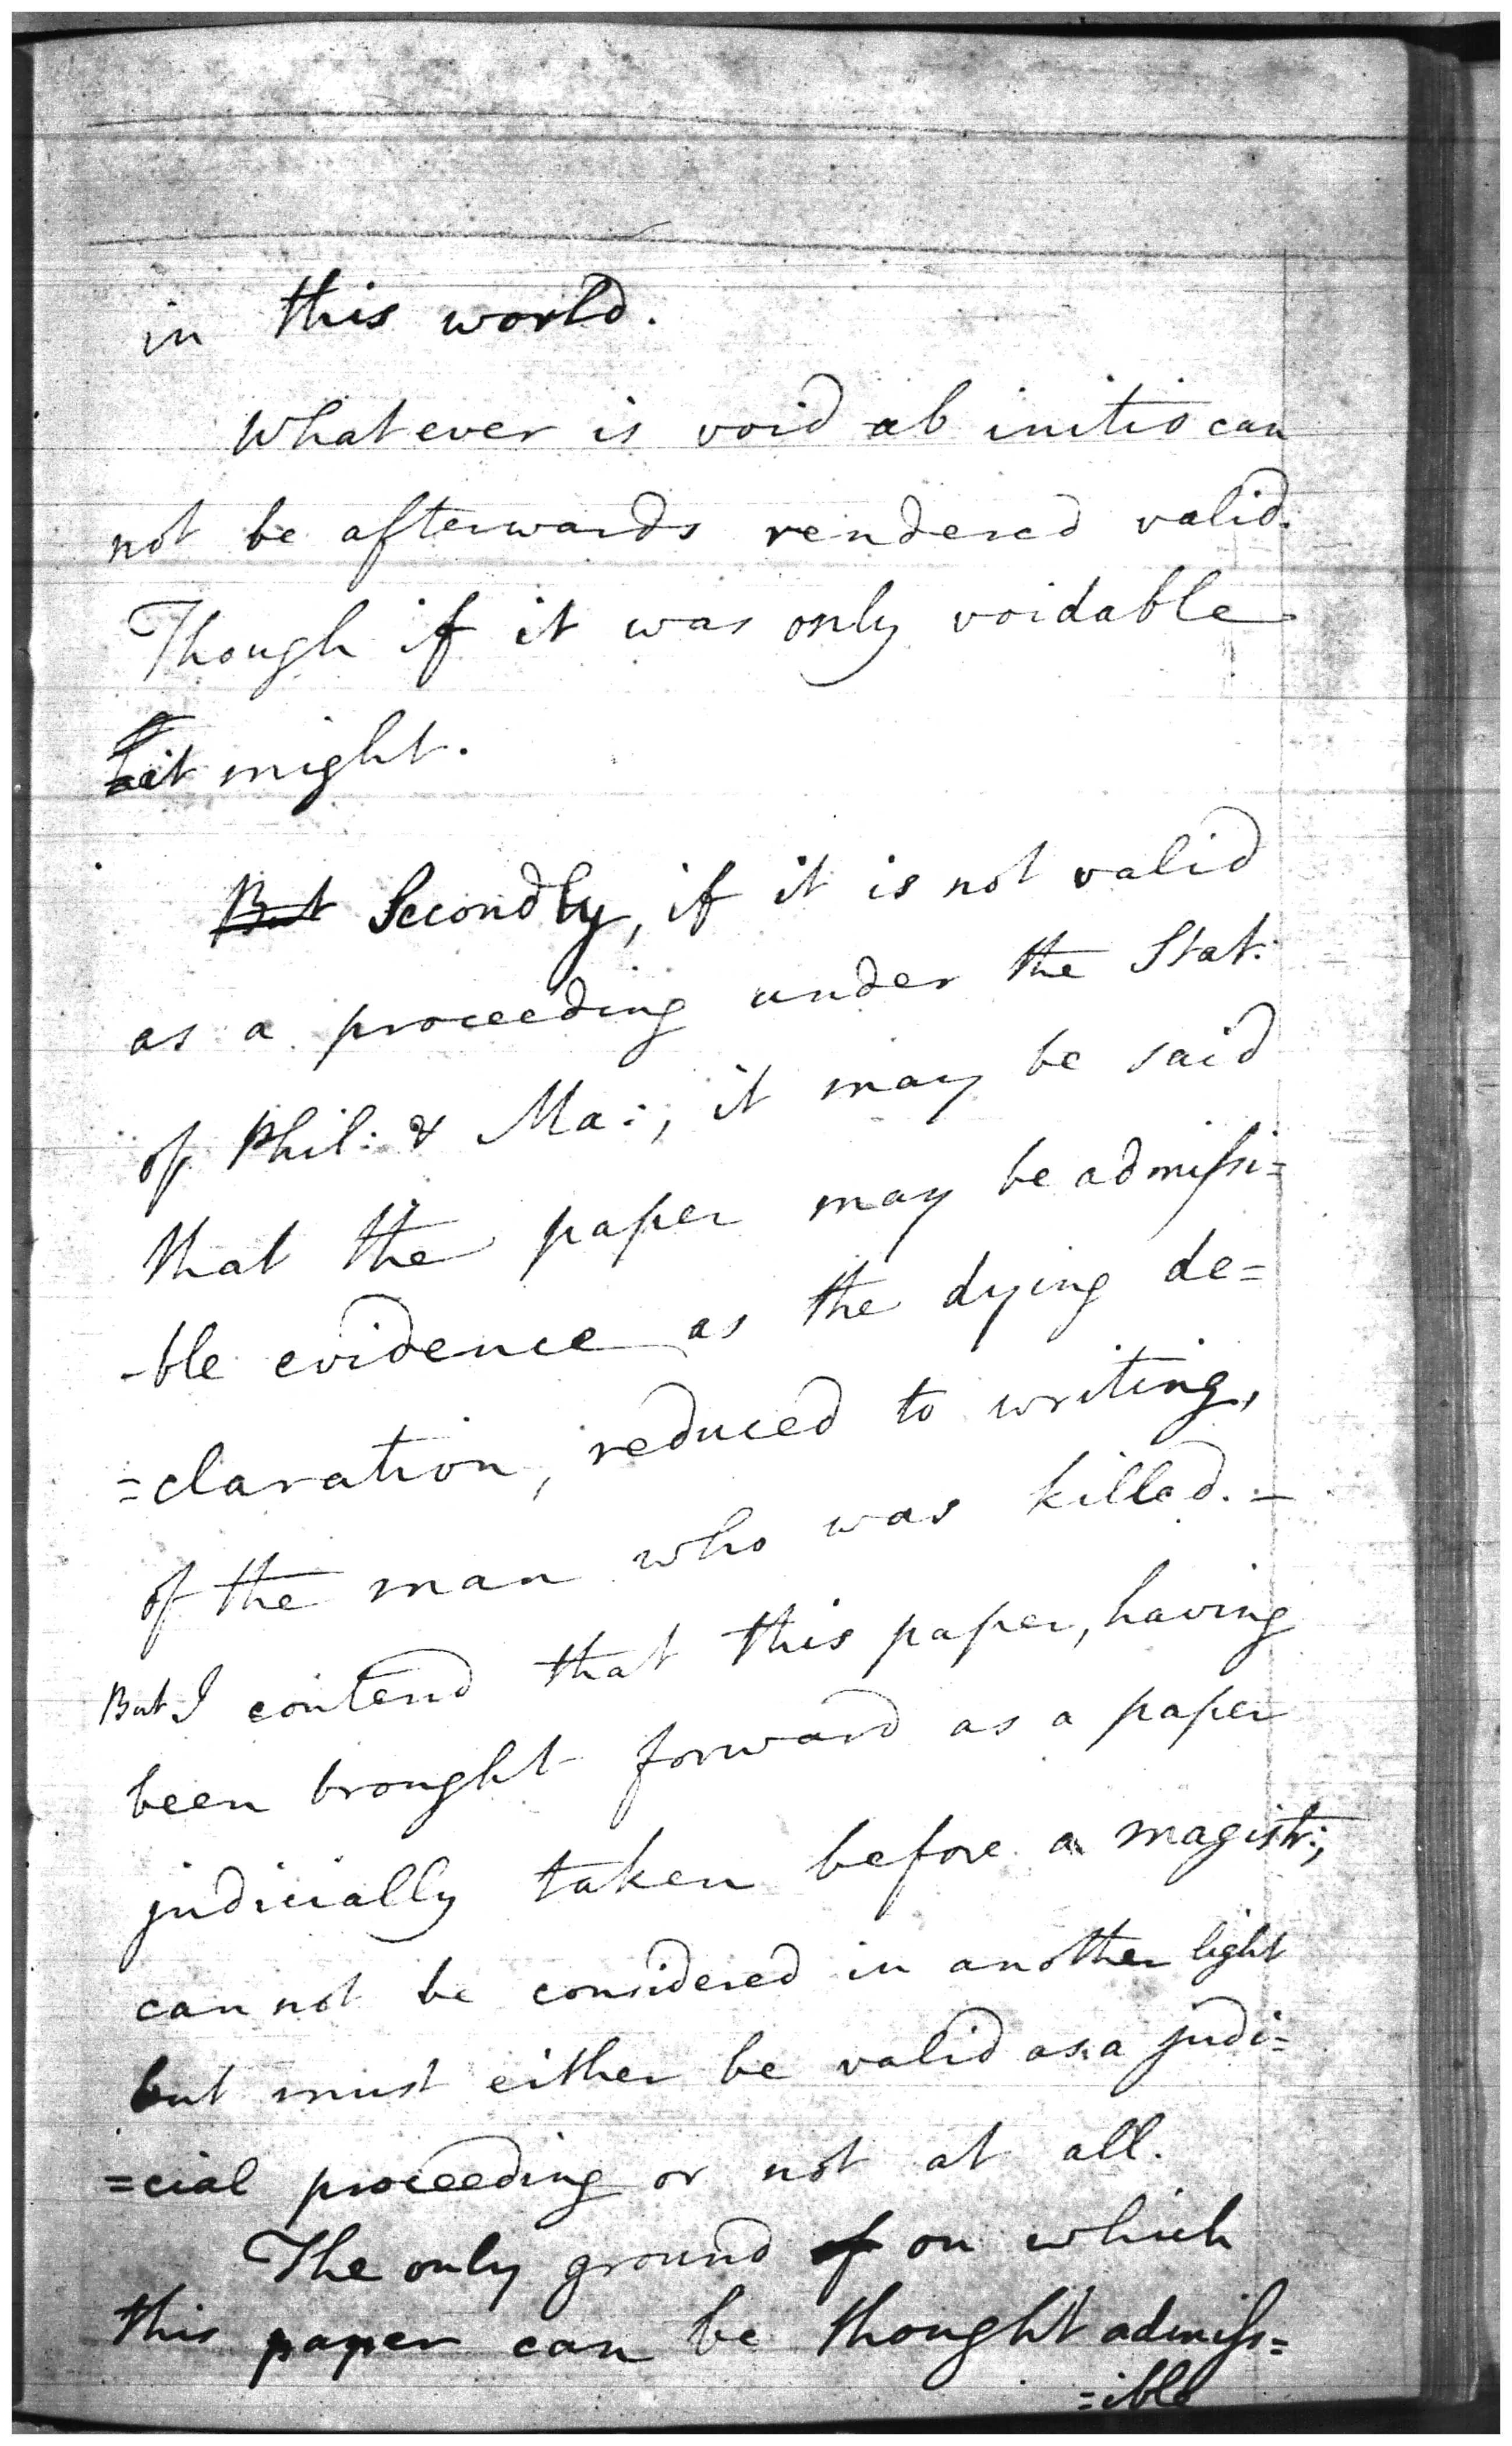 in this world.
Whatever is void ab initio can
not be afterwards rendered valid.
Though if it was only voidable
it might.
But Secondly, if it is not valid
as a proceeding under the Stat:
of Phil: & Ma:, it may be said
that the paper may be admissi=
-ble evidence as the dying de=
=claration, reduced to writing,
of the man who was killed. -
But I contend that this paper, having
been brought forward as a paper
judicially taken before a magistr:,
cannot be considered in another light
but must either be valid as a judi=
=cial proceeding or not at all.
The only ground of on which
this paper can be thought admiss=
=ible